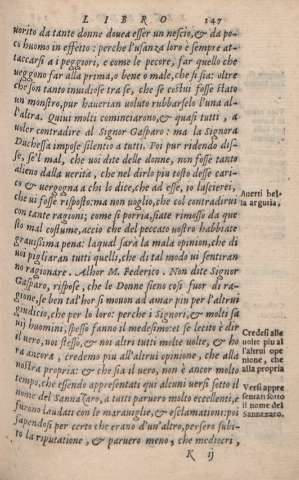 LIBRO 147
uorito da tante donne douea esser un nescio, & da po-
co huomo in effetto: perche l'usanza loro è sempre at-
taccarsi a i peggiori, e come le pecore, far quello che
ueggono far alla prima, o bene o male, che si sia: oltre
che son tanto inuidiose tra se, che se costui fosse stato
un monstro, pur hauerian uoluto rubbarselo l'una al-
l'altra. Quiui molti cominciarono, & quasi tutti, a
uoler contradire al Signor Gasparo: ma la Signora
Duchessa impose silentio a tutti. Poi pur ridendo dis-
se, se'l mal, che uoi dite delle donne, non fosse tanto
alieno dalla uerità, che nel dirlo piu tosto desse cari-
co & uergogna a chi lo dice, che ad esse, io lasciarei,
che ui fosse risposto: ma non uoglio, che col contradirui
con tante ragioni; come si porria, siate rimosso da que
sto mal costume, accio che del peccato uostro habbiate
grauisima pena: laqual sarà la mala opinion, che di
uoi pigliaran tutti quelli, che di tal modo ui sentiran
no ragionare. Alhor M. Federico. Non dite Signor
Gasparo, rispose, che le Donne sieno cosi fuor di ra-
gione, se ben tal'hor si mouon ad amar piu per l'altrui
giudicio, che per lo loro: perche i Signori, & molti sa
uij huomini, spesso fanno il medesimo: et se lecito è dir
il uero, uoi stesso, & noi altri tutti molte uolte, & ho
ra ancora, credemo piu all'altrui opinione, che alla
nostra propria: & che sia il uero, non è ancor molto
tempo, che essendo appresentati qui alcuni uersi sotto il
nome del Sannazaro, a tutti paruero molto eccellenti, e
furono laudati con le marauiglie, & esclamationi: poi
sapendosi per certo che erano d'un'altro, persero subi-
to la riputatione, & paruero meno, che mediocri,
K ij
Auerti bel-
la argutia,
Credesi alle
uolte piu al
l'altrui opi
nione, che
alla propria
Versi appre
sentati sotto
il nome del
Sannazaro.